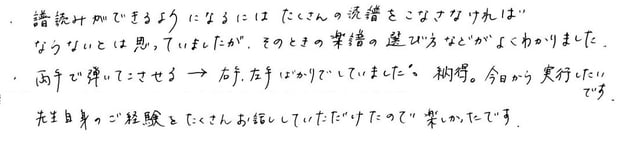 ・譜読みができるようになるには たくさんの流譜をこなさなければ
ならないとは思っていましたが、そのときの楽譜の選び方などがよくわかりました。
・両手で弾いてこさせる → 右手、左手ばかりでしていました。納得。今日から実行したい
です。
先生自身のご経験をたくさんお話ししていただけたので楽しかったです。